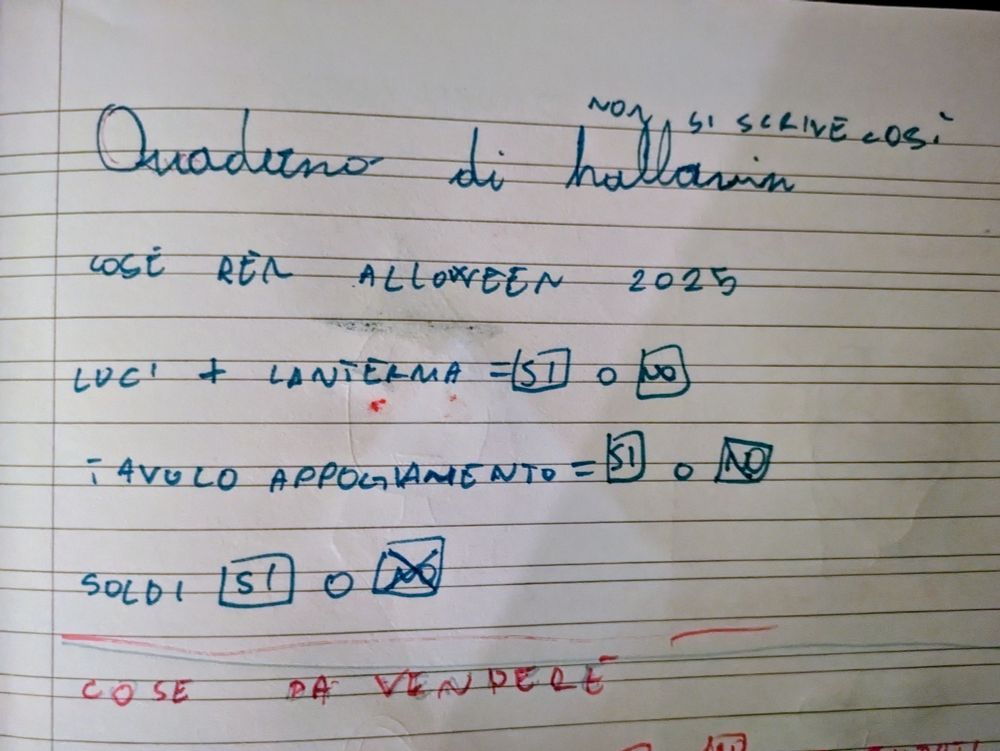 NON SI SCRIVE COSÌ
Quaderno di hallowin
COSÈ RËR ALLOWEEN 2025
LUCI + LANTERMA = SI O NO
TAVULO APPOGIAMENTO = SI O NO
SOLDI SI O NO
COSE DA VENDERE